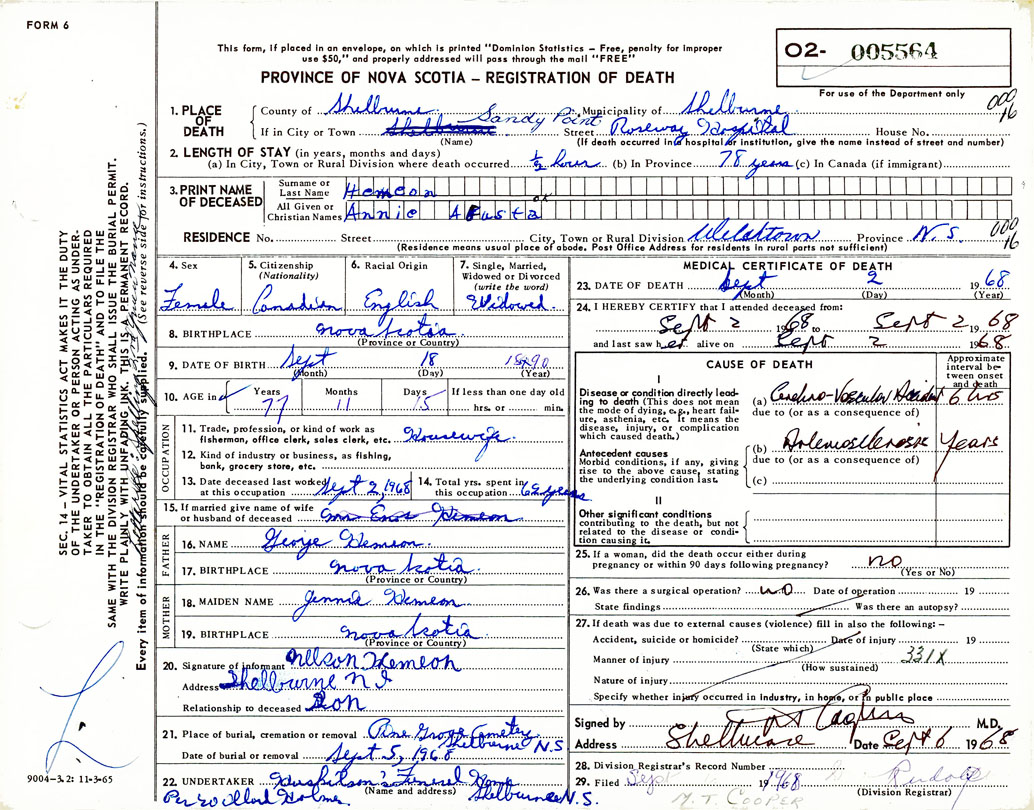 FORM 6
This form, if placed in an envelope, on which is printed "Dominion Statistics – Free, penalty for improper
use $50," and properly addressed will pass through the mail "FREE"
PROVINCE OF NOVA SCOTIA – REGISTRATION OF DEATH
O2- 005564
For use of the Department only
000
16
1. PLACE OF DEATH
County of Shelburne Municipality of Shelburne
If in City or Town Shelburne Sandy Point Street Roseway Hospital House No.
(Name) (If death occurred in a hospital or institution, give the name instead of street and number)
2. LENGTH OF STAY (in years, months and days)
(a) In City, Town or Rural Division where death occurred ½ hour (b) In Province 78 years (c) In Canada (if immigrant)
3. PRINT NAME OF DECEASED
Surname or Last Name Hemeon
All Given or Christian Names Annie
OK
RESIDENCE No. Street City, Town or Rural Division Welshtown Province N.S.
000
16
(Residence means usual place of abode. Post Office Address for residents in rural parts not sufficient)
4. Sex
Female
5. Citizenship
(Nationality)
Canadian
6. Racial Origin
English
7. Single, Married,
Widowed or Divorced
(write the word)
Widowed
8. BIRTHPLACE Nova Scotia
(Province or Country)
9. DATE OF BIRTH Sept 18 1890
(Month) (Day) (Year)
10. AGE in
Years Months Days If less than one day old
77 11 15 hrs. or min.
OCCUPATION
11. Trade, profession, or kind of work as
fisherman, office clerk, sales clerk, etc. Housewife
12. Kind of industry or business, as fishing,
bank, grocery store, etc.
13. Date deceased last worked
at this occupation Sept 2, 1968
14. Total yrs. spent in
this occupation 62 years
15. If married give name of wife
or husband of deceased Mrs Enos Hemeon
FATHER
16. NAME George Hemeon
17. BIRTHPLACE Nova Scotia
(Province or Country)
MOTHER
18. MAIDEN NAME Jennie Hemeon
19. BIRTHPLACE Nova Scotia
(Province or Country)
20. Signature of informant Nelson Hemeon
Address Shelburne N S
Relationship to deceased Son
21. Place of burial, cremation or removal Pine Grove Cemetery
Shelburne N.S
Date of burial or removal Sept. 5, 1968
22. UNDERTAKER Huskilson's Funeral Home
(Name and address)
Per Willard Holmes Shelburne N.S.
MEDICAL CERTIFICATE OF DEATH
23. DATE OF DEATH Sept 2 1968
(Month) (Day) (Year)
24. I HEREBY CERTIFY that I attended deceased from:
Sept 2 1968 to Sept 2 1968
and last saw her alive on Sept 2 1968.
CAUSE OF DEATH
Approximate
interval be-
tween onset
and death
I
Disease or condition directly lead-
ing to death (This does not mean
the mode of dying, e.g., heart fail-
ure, asthenia, etc. It means the
disease, injury, or complication
which caused death.)
(a) Cerebro-Vascular Accident 6 hrs
due to (or as a consequence of)
Antecedent causes
Morbid conditions, if any, giving
rise to the above cause, stating
the underlying condition last.
(b) Arteriosclerosis years
due to (or as a consequence of)
(c)
II
Other significant conditions
contributing to the death, but not
related to the disease or condi-
tion causing it.
25. If a woman, did the death occur either during
pregnancy or within 90 days following pregnancy? no
(Yes or No)
26. Was there a surgical operation? no Date of operation 19
State findings Was there an autopsy?
27. If death was due to external causes (violence) fill in also the following: –
Accident, suicide or homicide? Date of injury 19
(State which)
Manner of injury 331X
(How sustained)
Nature of injury
Specify whether injury occurred in industry, in home, or in public place
Signed by M.D.
Address Shelburne Date Sept 6 1968
28. Division Registrar's Record Number
29. Filed Sept 1968
(Division Registrar)
M. T. COOPER
SEC. 14 – VITAL STATISTICS ACT MAKES IT THE DUTY
OF THE UNDERTAKER OR PERSON ACTING AS UNDER-
TAKER TO OBTAIN ALL THE PARTICULARS REQUIRED
IN THE "REGISTRATION OF DEATH" AND TO FILE THE
SAME WITH THE DIVISION REGISTRAR WHO SHALL ISSUE THE BURIAL PERMIT.
WRITE PLAINLY WITH UNFADING INK. THIS IS A PERMANENT RECORD.
Every item of information should be carefully supplied. (See reverse side for instructions.)
9004-3.2: 11-3-65